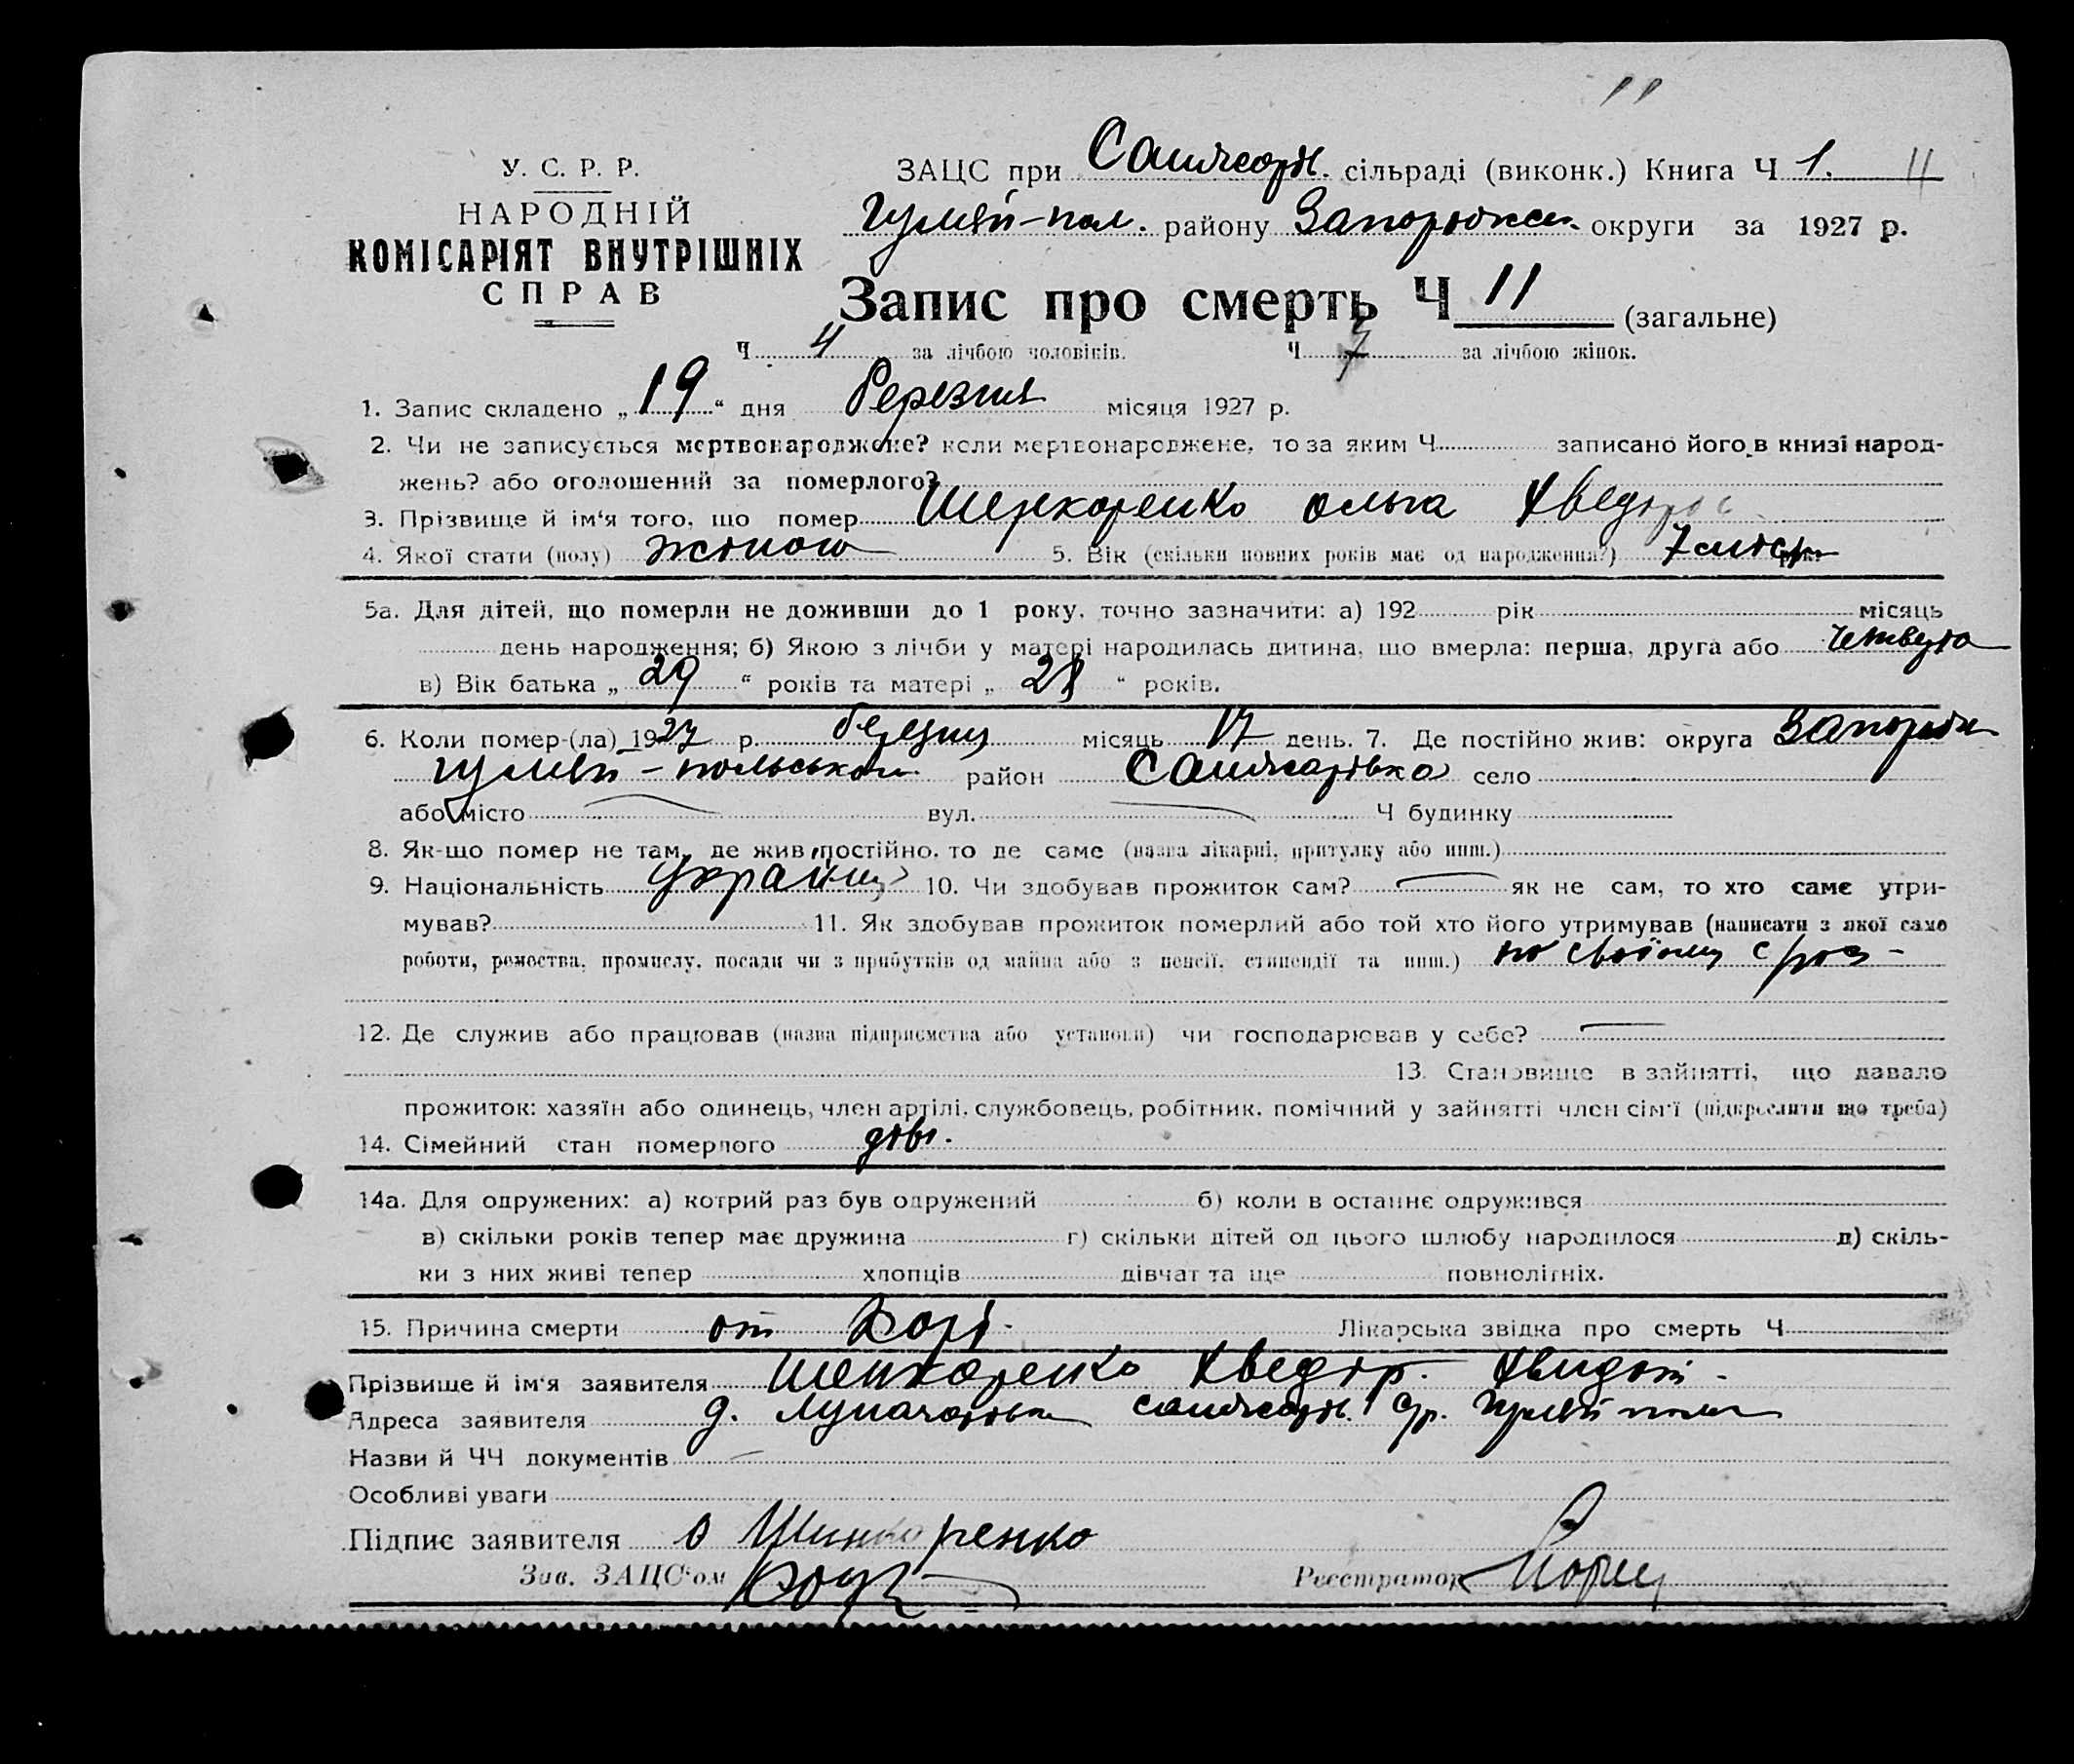 11
У. С. Р. Р.
НАРОДНІЙ
КОМІСАРІЯТ ВНУТРІШНІХ
СПРАВ
ЗАЦС при Санжарів. сільраді (виконк.) Книга Ч 1. 11
Гуляй-пол. району Запоріжськ. округи за 1927 р.
Запис про смерть Ч 11 (загальне)
Ч 4 за лічбою чоловіків. Ч 7 за лічбою жінок.
1. Запис складено „19“ дня березня місяця 1927 р.
2. Чи не записується мертвонароджене? коли мертвонароджене, то за яким Ч записано його в книзі народ-
жень? або оголошений за померлого?
3. Прізвище й ім'я того, що помер Шенкоренко Ольга Хведоров
4. Якої стати (полу) жіноча 5. Вік (скільки повних років має од народження?) 7 місяц
5а. Для дітей, що померли не доживши до 1 року, точно зазначити: а) 192 рік місяць
день народження; б) Якою з лічби у матері народилась дитина, що вмерла: перша, друга або четверта
в) Вік батька „29“ років та матері „28“ років.
6. Коли помер-(ла) 1927 р. березня місяць 17 день. 7. Де постійно жив: округа Запоріж
Гуляй-польський район Санжарівка село
або місто вул. Ч будинку
8. Як-що помер не там, де жив постійно, то де саме (назва лікарні, притулку або инш.)
9. Національність україн 10. Чи здобував прожиток сам? як не сам, то хто саме утри-
мував? 11. Як здобував прожиток померлий або той хто його утримував (написати з якої само
роботи, ремества, промислу, посади чи з прибутків од майна або з пенсії, стипендії та инш.) по своїому
12. Де служив або працював (назва підприємства або установи) чи господарював у себе?
13. Становище в зайнятті, що давало
прожиток: хазяїн або одинець, член артілі, службовець, робітник, помічний у зайнятті член сім'ї (підкреслити що треба)
14. Сімейний стан померлого діви.
14а. Для одружених: а) котрий раз був одружений б) коли в останнє одружився
в) скільки років тепер має дружина г) скільки дітей од цього шлюбу народилося д) скіль-
ки з них живі тепер хлопців дівчат та ще повнолітніх.
15. Причина смерти от Корі. Лікарська звідка про смерть Ч
Прізвище й ім'я заявителя Шенкоренко Хведір.
Адреса заявителя д. Луначарськ Санжарів. с/р. Гуляйполь
Назви й ЧЧ документів
Особливі уваги
Підпис заявителя Шинкоренко
Зав. ЗАЦС'ом Реєстратор